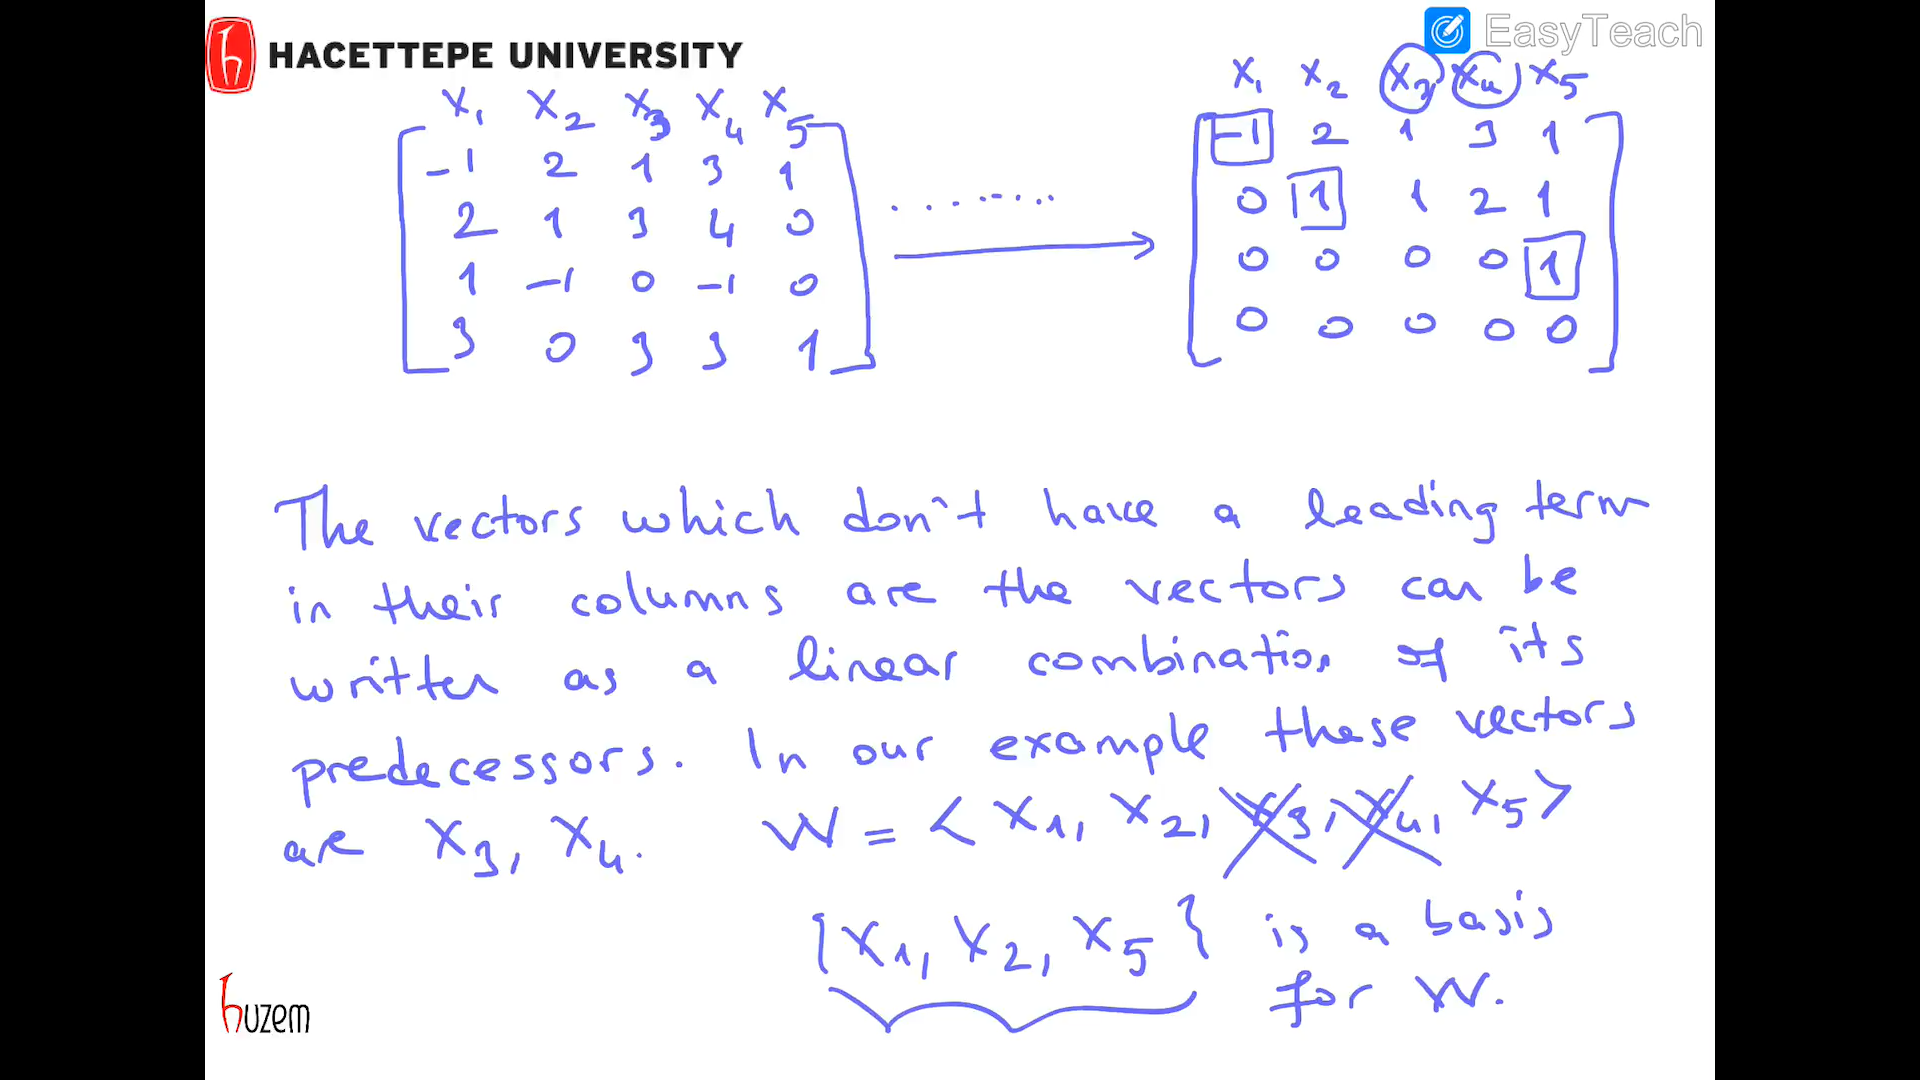 EasyTeach
HACETTEPE UNIVERSITY
x1 x2 x3 x4 x5
-1 2 1 3 1
2 1 3 4 0
1 -1 0 -1 0
3 0 3 3 1
x1 x2 x3 x4 x5
-1 2 1 3 1
0 1 1 2 1
0 0 0 0 1
0 0 0 0 0
The vectors which don't have a leading term
in their columns are the vectors can be
written as a linear combination of its
predecessors. In our example these vectors
are x3, x4. W = < x1, x2, x3, x4, x5 >
{x1, x2, x5} is a basis
for W.
huzem